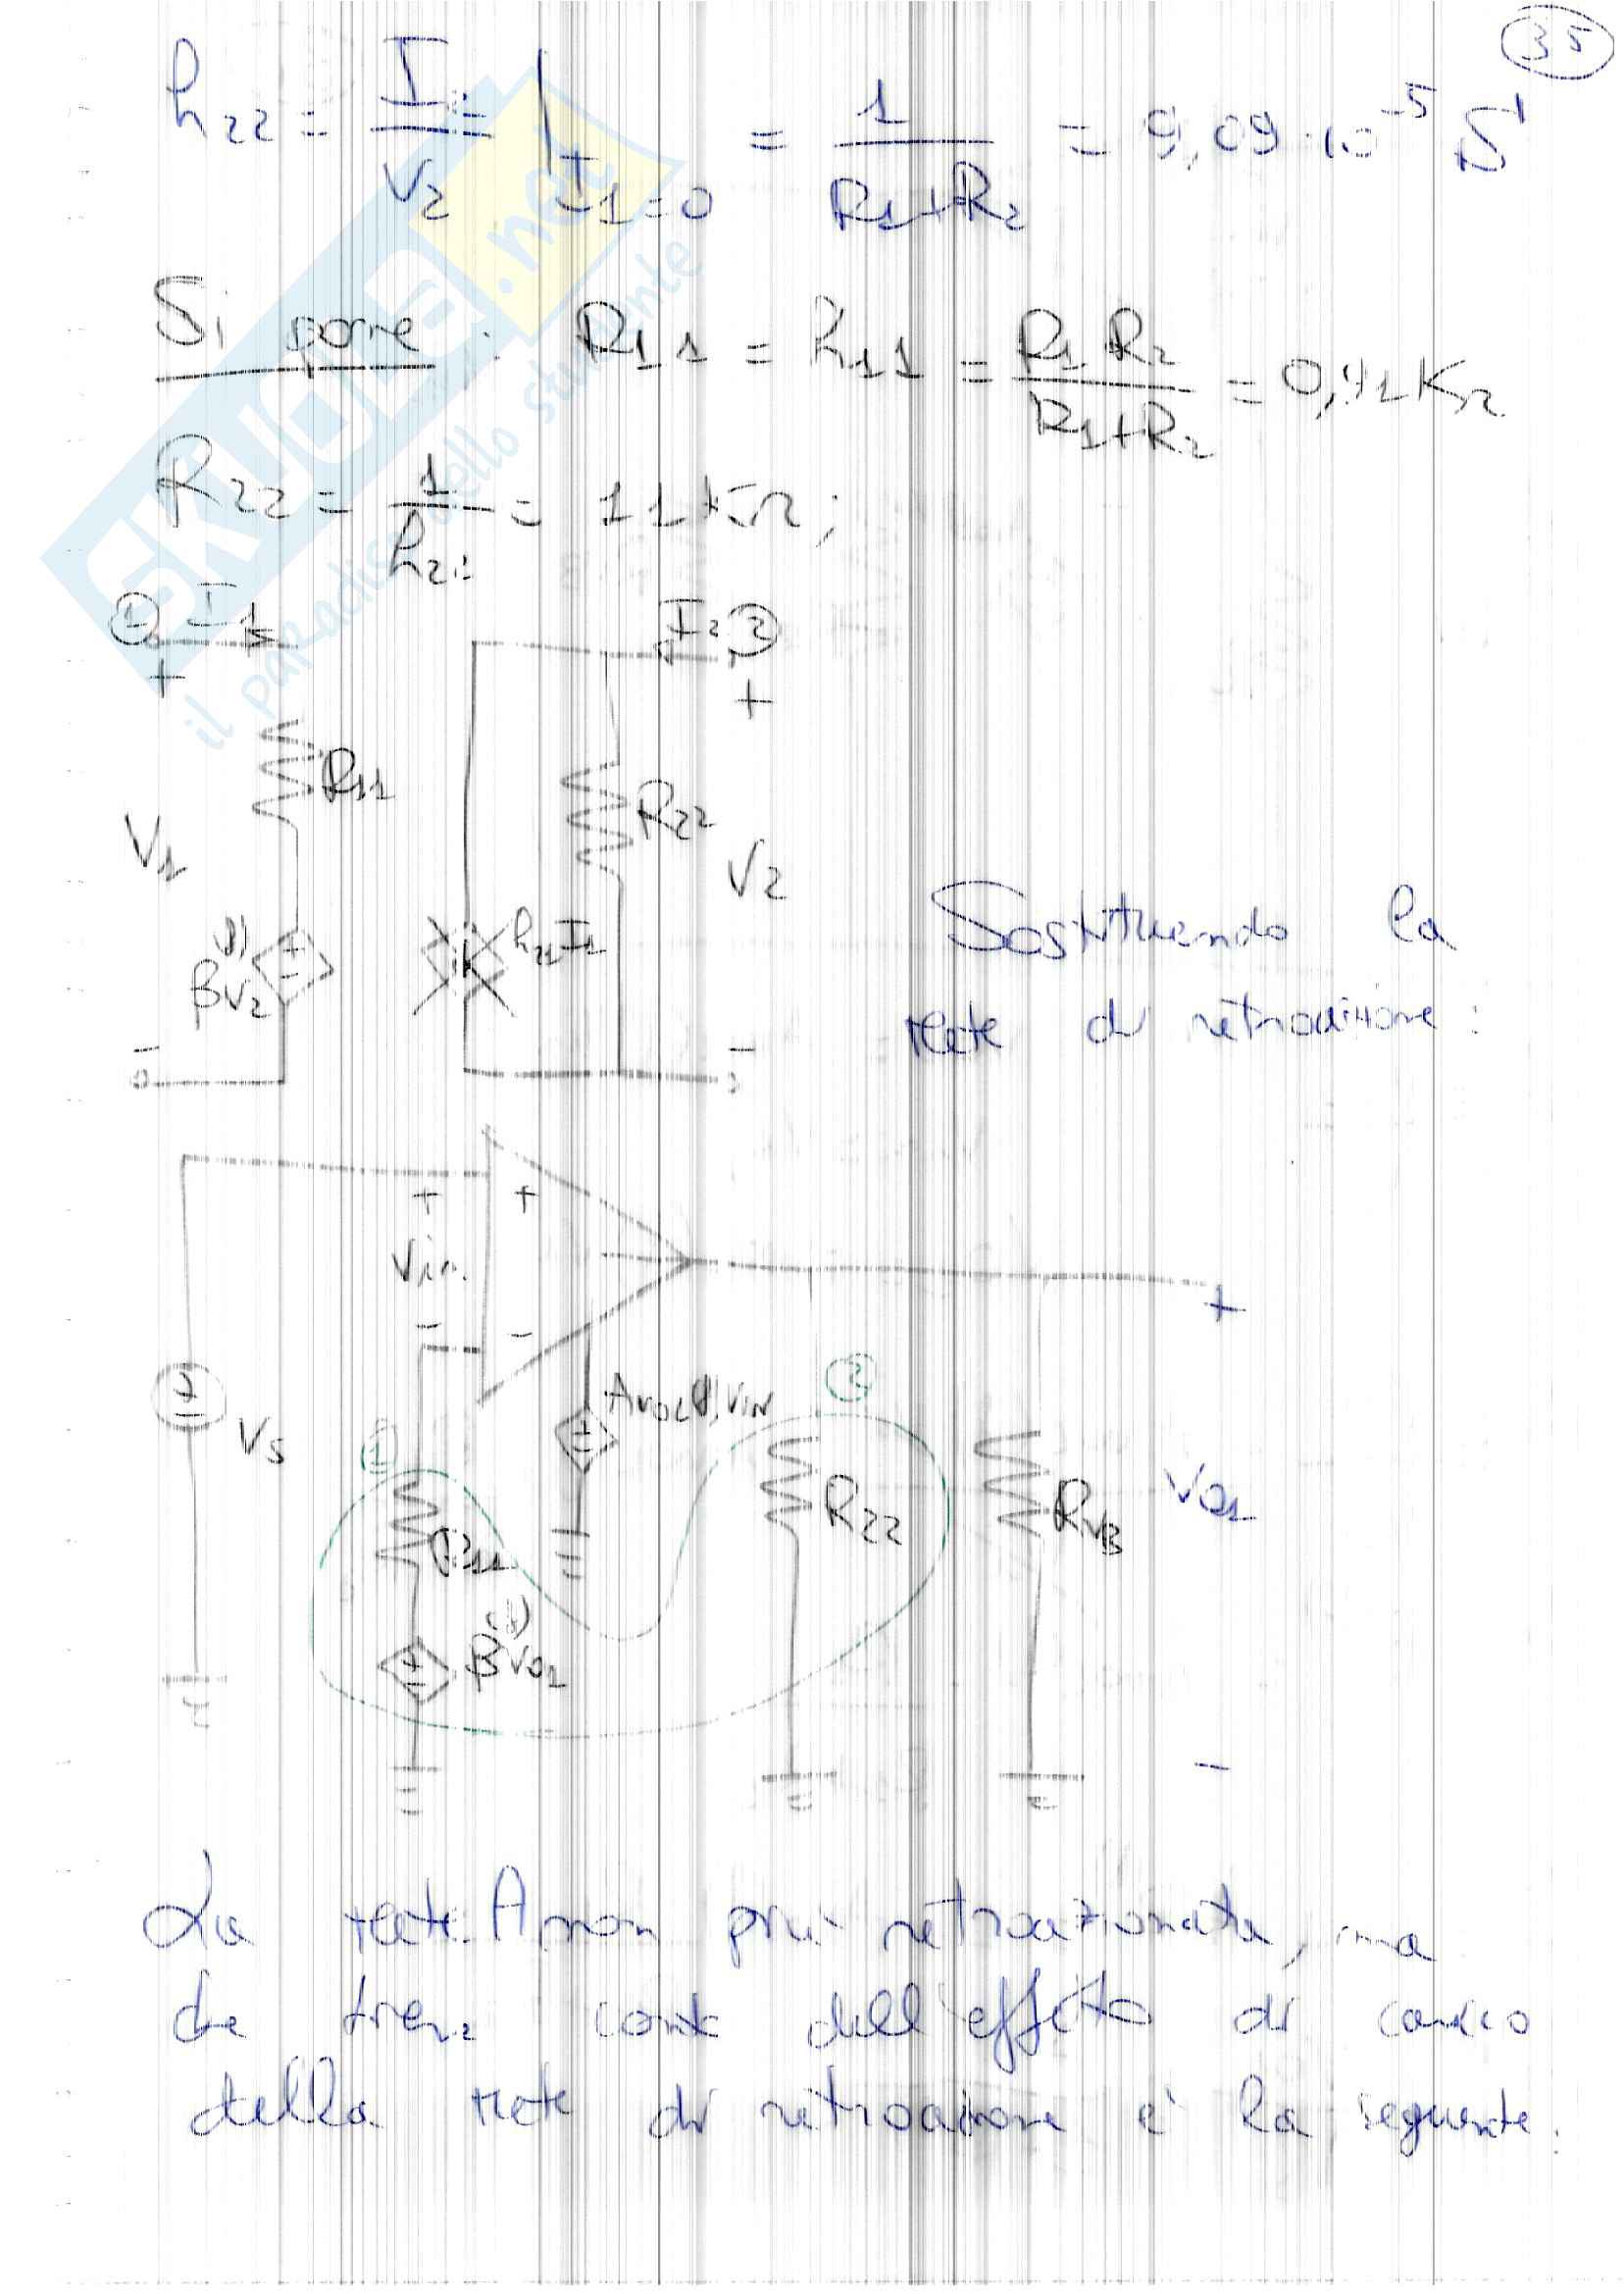 35
h22 = I2/V2 |I1=0 = 1/(R1+R2) = 9,09·10^-5 S
Si pone: R11 = h11 = R1 R2/(R1+R2) = KΩ
R22 = 1/h22 = 11 KΩ;
1 I1
I2 2
+
+
R11
R22
V1
V2
h21 I1
βV2
Sostituendo la
rete di retroazione:
-
-
+ +
Vin
- -
+
Vs
AVOL Vin
1
2
R11
R22
RVB
Vo1
βVo1
-
La rete A non più retroazionata, ma
che tiene conto dell'effetto di carico
della rete di retroazione è la seguente.
SKUOLA.net
il paradiso dello studente